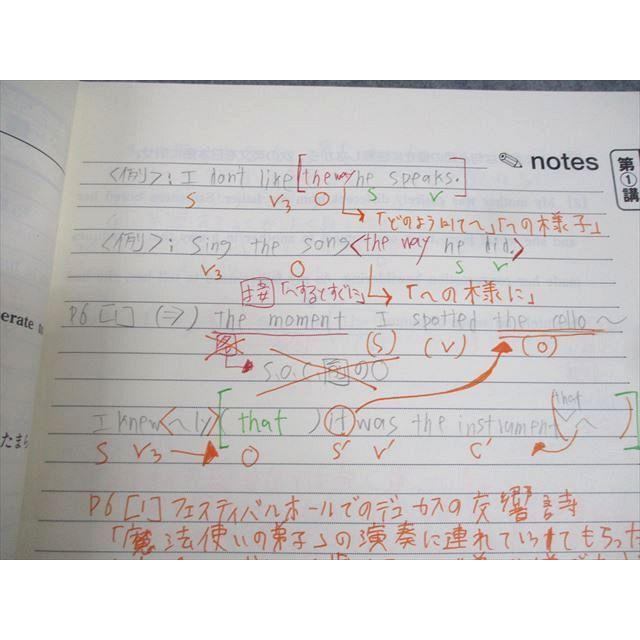 notes
第①講
<例>: I don't like [the way he speaks.]
S V3 O S V
「どのように〜」「〜の様子」
<例>; Sing the song <the way he did.>
V3 O S V
接 「〜するとすぐに」 「〜の様に」
P6 [1] (⇒) the moment I spotted the cello 〜
(S) (V) (O)
S.O.C
I knew <〜ly> [(that) it was the instrument 〜]
that
S V3 O S' V' C'
erate
たまら
P6 [1] フェスティバルホールでのデュカスの交響詩
「魔法使いの弟子」の演奏に連れていってもらった